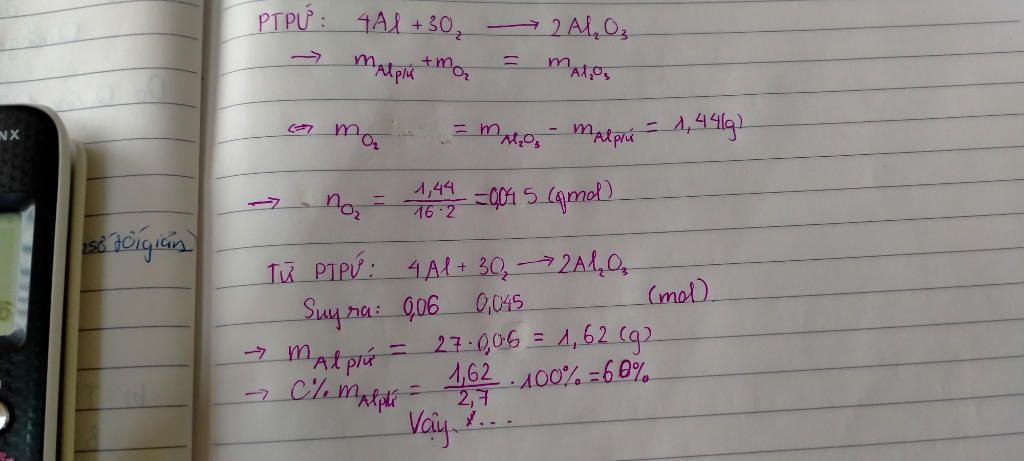 PTPƯ: 4Al + 3O₂ ⟶ 2Al₂O₃
→ m_Alpứ + m_O₂ = m_Al₂O₃
⇔ m_O₂ = m_Al₂O₃ - m_Alpứ = 1,44(g)
NX
→ n_O₂ = 1,44/16·2 = 0,045 (mol)
số tối giản)
Từ PTPƯ: 4Al + 3O₂ ⟶ 2Al₂O₃
Suy ra: 0,06 0,045 (mol)
→ m_Alpứ = 27·0,06 = 1,62 (g)
→ C% m_Alpứ = 1,62/2,7 · 100% = 60%
Vậy ...